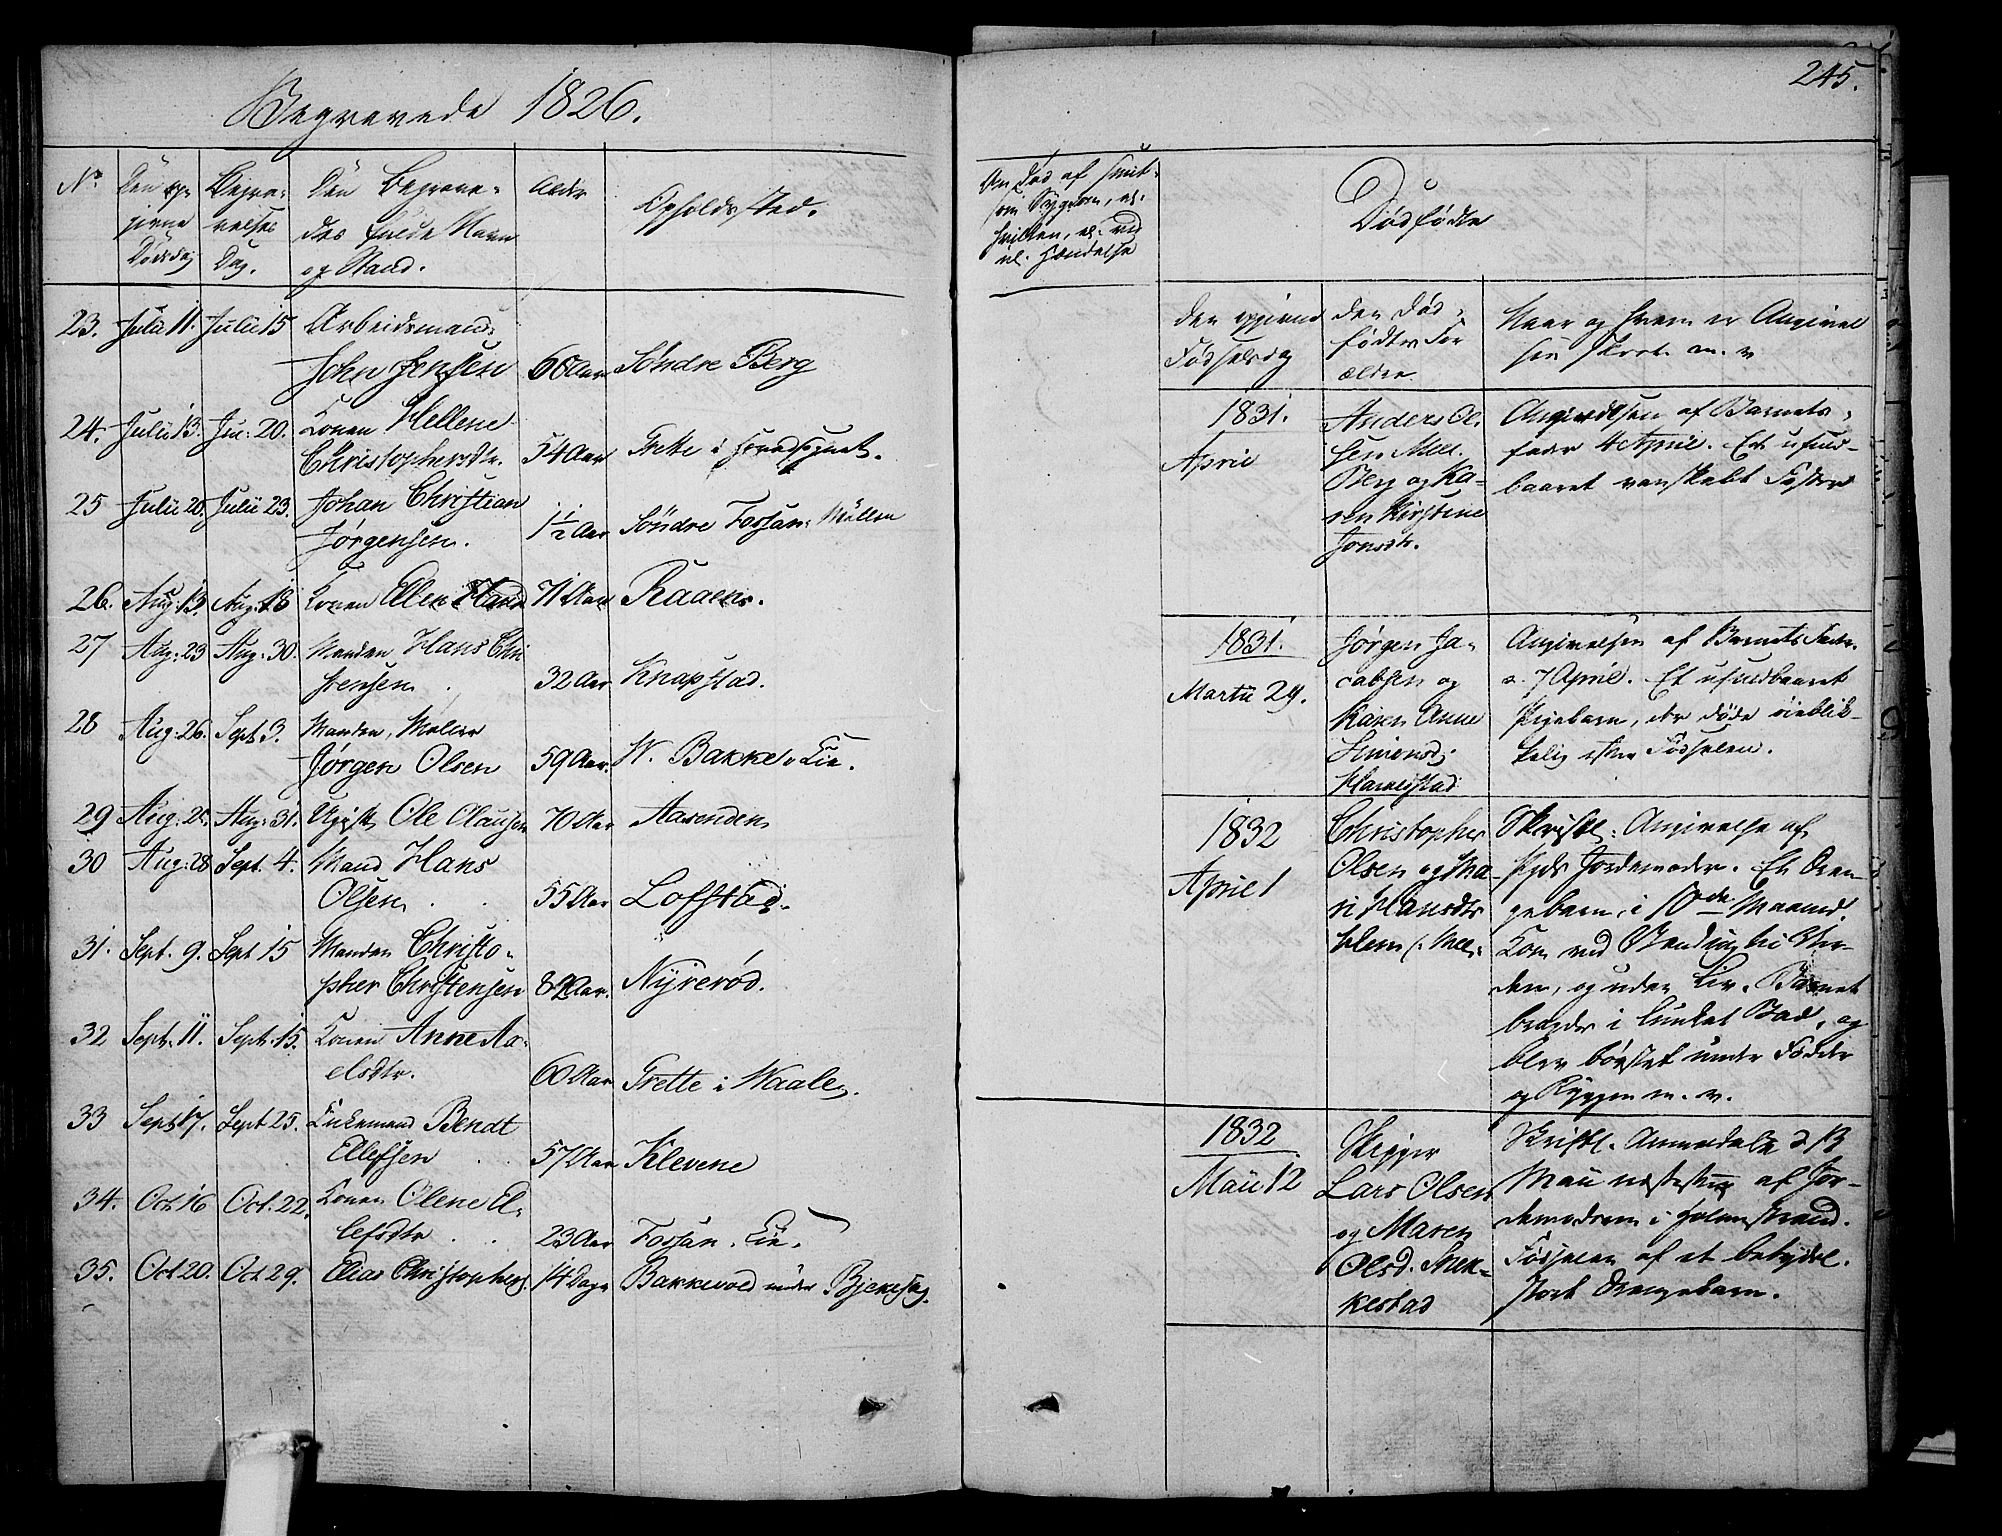 Begravede 1826.
No
Den op-
givne
Dødsdag
Begra-
velses
Dag.
Den Begrave-
des fulde Navn
og Stand.
Alder
Opholdssted.
23. Julii 11. Julii 15 Arbeidsmand
John Jensen 60 Aar Søndre Berg
24. Julii 13. Jul: 20. Konen Hellene
Christophersdtr. 54 Aar Trette i
25 Julii 20. Julii 23. Johan Christian
Jørgensen. 1½ Aar Søndre Fossan: Møllen
26. Aug: 13. Aug: 18 Konen Ellen 71 Aar Raaen.
27 Aug: 23 Aug: 30. Manden Hans Chri
stensen. 32 Aar Knapstad.
28 Aug: 26. Sept 3. Manden, Møller
Jørgen Olsen 59 Aar. N. Bakke, Lie.
29 Aug: 25. Aug: 31. Ole Clausen 70 Aar Aasenden
30 Aug: 28 Sept. 4. Mand Hans
Olsen 55 Aar Lofstad.
31. Sept. 9. Sept 15 Manden Christo-
pher Christensen 82 Aar. Nyrerød.
32 Sept. 11. Sept. 15. Konen Anne Ax-
elsdtr. 60 Aar Trette i Waale.
33 Sept 17. Sept 25. Enkemand Bendt
Ellefsen 57 Aar Klevene
34. Oct 16 Oct. 22. Konen Olene El-
lefsdtr 23 Aar Fossan, Lie.
35. Oct 20. Oct 29. Elias Christophers. 14 Dage Bakkevold under
245.
Om død af smit-
som Sygdom, og
hvilken, el. ved
ul. Hændelse
Dødfødte
Den opgivne
Fødselsdag
Den Død-
fødtes For
ældre
Naar og hvem er Angivel
sen skeet m. v
1831.
April
Anders Ol-
sen Mel.
Berg og Ka-
ren Kirstine
Jonsdtr.
Angivelsen af Barnets
fader 4 April. Et ufuld-
baaret vanskabt Foster
1831.
Martii 29.
Jørgen Ja-
cobsen og
Karen Anne
Simensd:
Angivelsen af Barnets Fader
d. 7 April. Et ufuldbaaret
Pigebarn, der døde øieblik-
kelig efter Fødselen.
1832
April 1
Christopher
Olsen og Ma-
ri Hansdtr
Skriftl: Angivelse af
Jordemoder. Et Dren
gebarn, i 10de Maaned.
Kom ved Vending til Ver-
den, og uden Liv. Barnet
bragdes i lunket Bad, og
blev børstet under Fødder
og Ryggen m. v.
1832
Maii 12
Skipper
Lars Olsen
og Maren
Olsd. Snek-
kestad
Skriftl. Anmeldelse d 13
Maii af Jor-
demodren i Holmstrand.
Fødselen af et betydel.
stort Drengebarn.